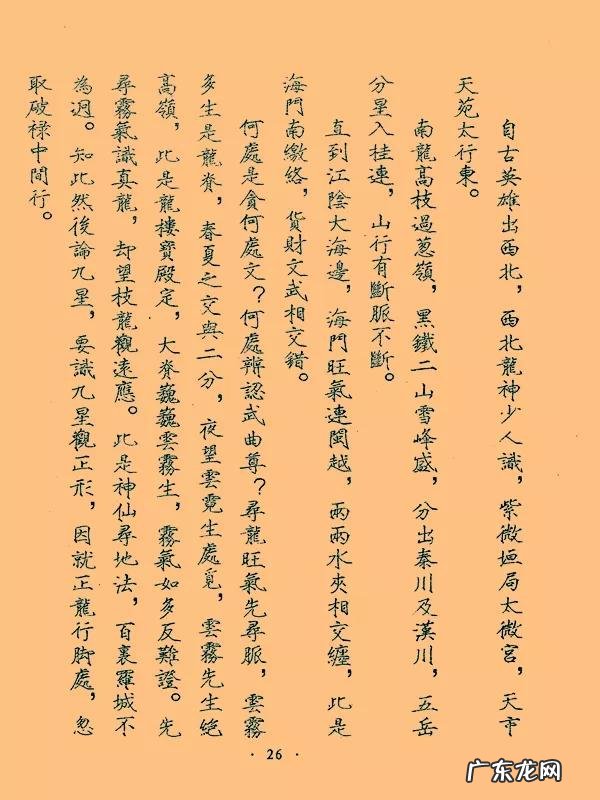 自古英雄出西北，西北龍神少人識，紫微垣局太微宮，天市
天苑太行東。
南龍高枝過蔥嶺，黑鐵二山雪峰盛，分出秦川及漢川，五岳
分星入桂連，山行有斷脈不斷。
直到江陰大海邊，海門旺氣連閩越，兩兩水夾相交纏，此是
海門南繳絡，貨財文武相交錯。
何處是貪何處文？何處辨認武曲尊？尋龍旺氣先尋脈，雲霧
多生是龍脊，春夏之交與二分，夜望雲霓生處覓，雲霧先生絕
高嶺，此是龍樓寶殿定，大脊巍巍雲霧生，霧氣如多反難證。先
尋霧氣識真龍，却望枝龍觀遠應。此是神仙尋地法，百裏羅城不
為迥。知此然後論九星，要識九星觀正形，因就正龍行脚處，忽
取破祿中間行。
· 26 ·
广东龙网